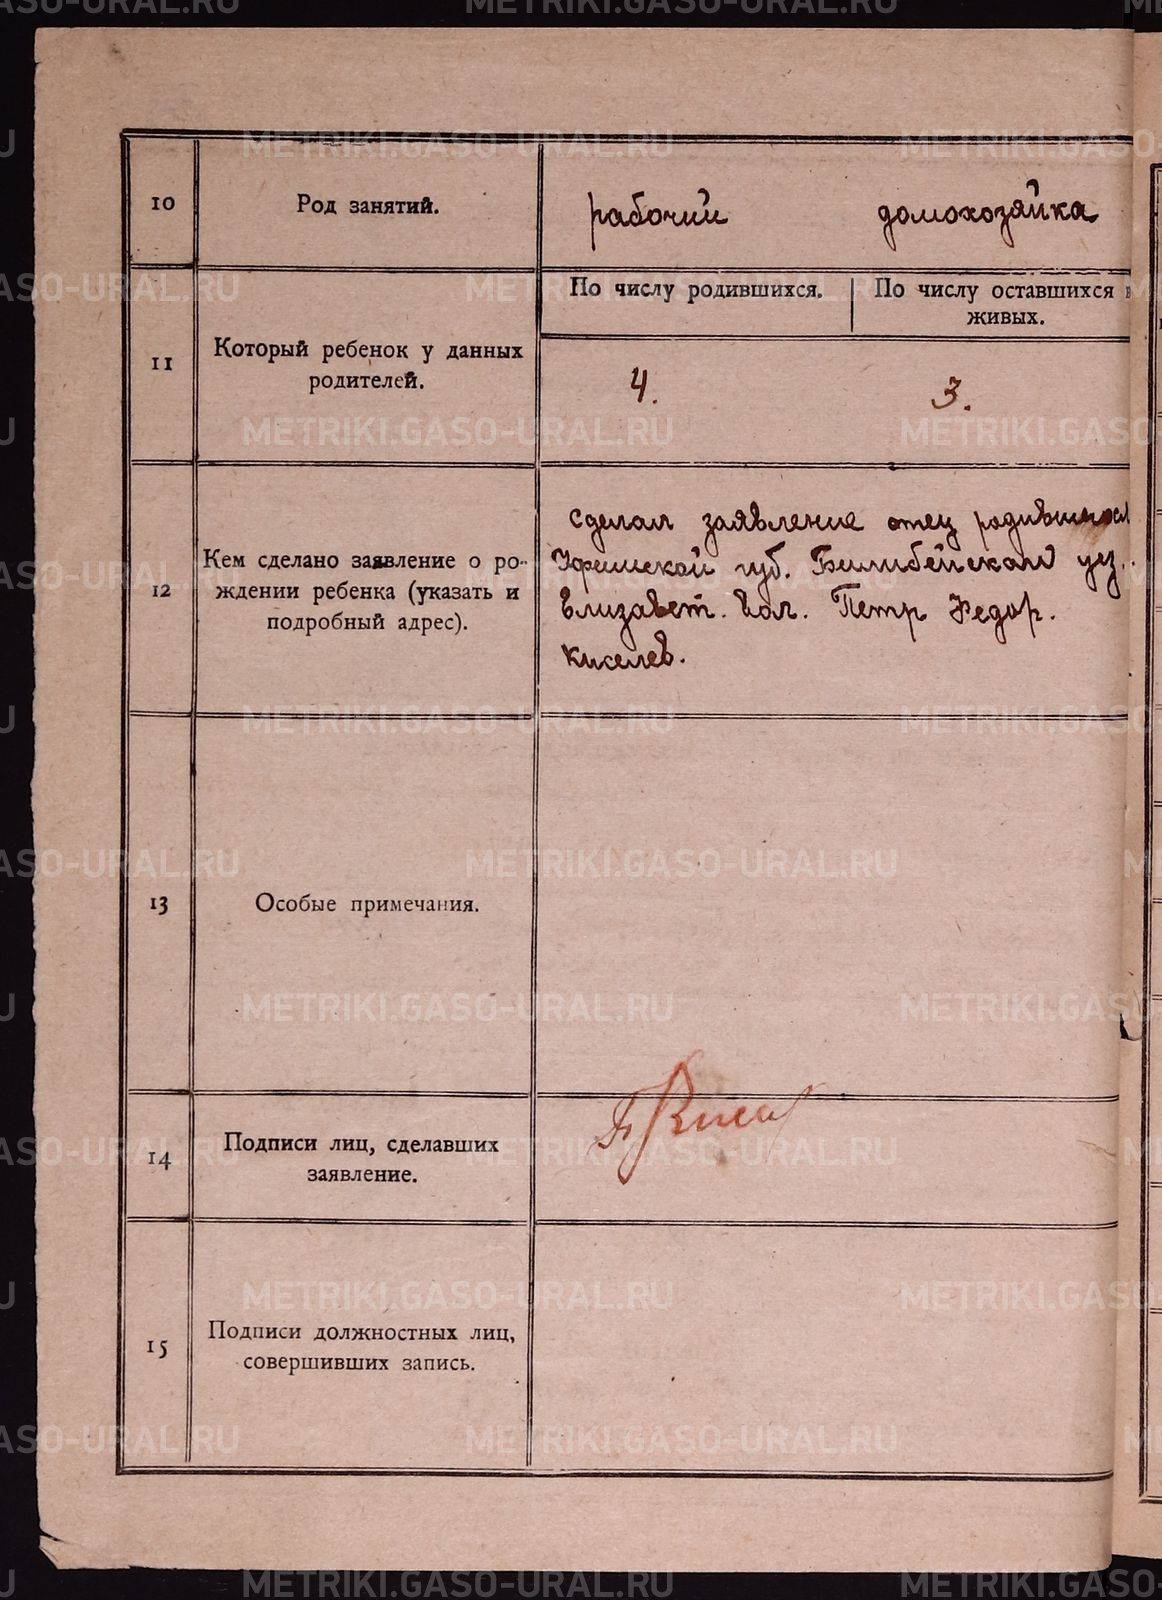 10 Род занятий. рабочий домохозяйка
По числу родившихся. По числу оставшихся в
живых.
11 Который ребенок у данных
родителей.
4. 3.
12 Кем сделано заявление о ро-
ждении ребенка (указать и
подробный адрес).
сделал заявление отец родившегося
Уфимской губ. Билибейскаго уез.
Елизавет. вол. Петр Федор.
Киселев.
13 Особые примечания.
14 Подписи лиц, сделавших
заявление.
П Кисел
15 Подписи должностных лиц,
совершивших запись.
METRIKI.GASO-URAL.RU